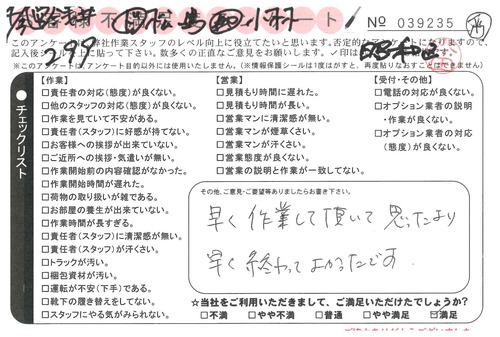 No 039235
このアンケートは弊社作業スタッフのレベル向上に役立てたいと思います。否定的なアンケートになりますので、
記入後シールを上に貼って下さい。数多くの正直なご意見をお願いします。
※このアンケートはアンケート目的以外には使用いたしません。（※情報保護シールは1度はがすと、再度貼りなおすことはできません）
チェックリスト
【作業】
□責任者の対応(態度)が良くない。
□他のスタッフの対応(態度)が良くない。
□作業を見ていて不安がある。
□責任者(スタッフ)に好感が持てない。
□お客様への挨拶が出来ていない。
□ご近所への挨拶・気遣いが無い。
□作業開始前の内容確認がなかった。
□作業開始時間が遅れた。
□荷物の取り扱いが雑である。
□お部屋の養生が出来ていない。
□作業時間が長すぎる。
□責任者(スタッフ)に清潔感が無い。
□責任者(スタッフ)が汗くさい。
□トラックが汚い。
□梱包資材が汚い。
□運転が不安(下手)である。
□靴下の履き替えをしてない。
□スタッフにやる気がみられない。
【営業】
□見積もり時間に遅れた。
□見積もり時間が長い。
□営業マンに清潔感が無い。
□営業マンが煙草くさい。
□営業マンが汗くさい。
□営業態度が良くない。
□営業の説明と作業が一致してない。
【受付・その他】
□電話の対応が良くない。
□オプション業者の説明
・作業が良くない。
□オプション業者の対応
(態度)が良くない。
その他、ご意見・ご要望等ありましたらお書き下さい。
早く作業して頂いて思ったより
早く終わってよかったです。
☆当社をご利用いただきまして、ご満足いただけたでしょうか?
□不満 □やや不満 □普通 □やや満足 ☑満足